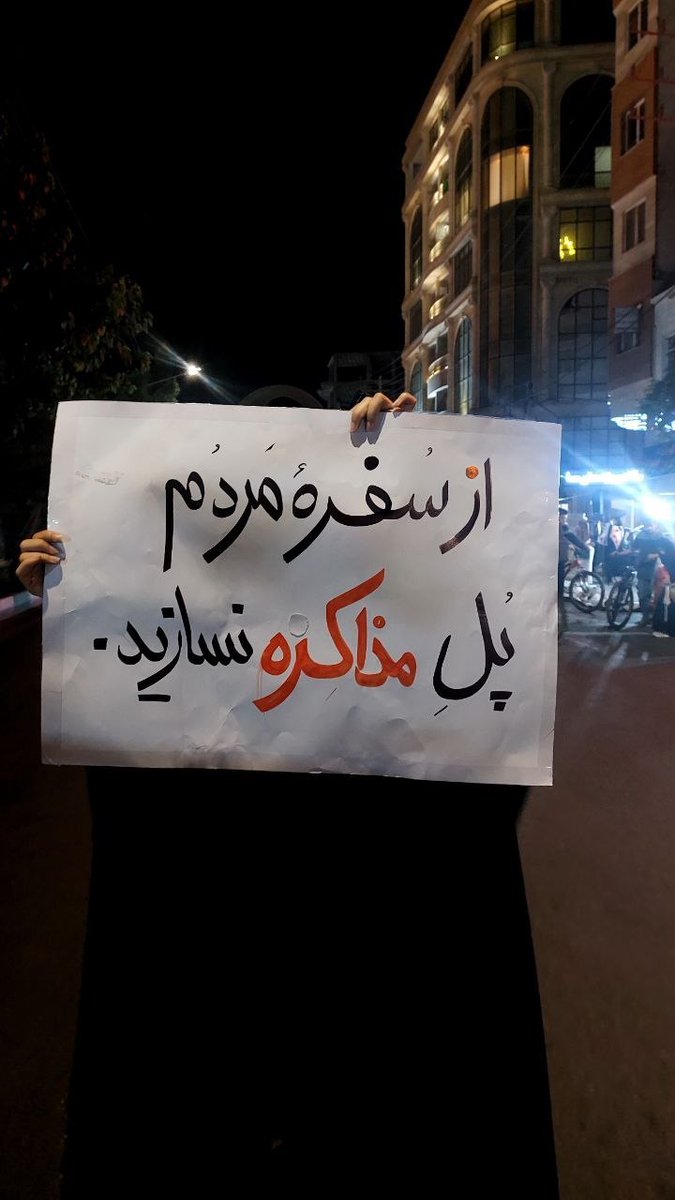 از سُفرهٔ مَردُم
پُلِ مذاکره نسازید.